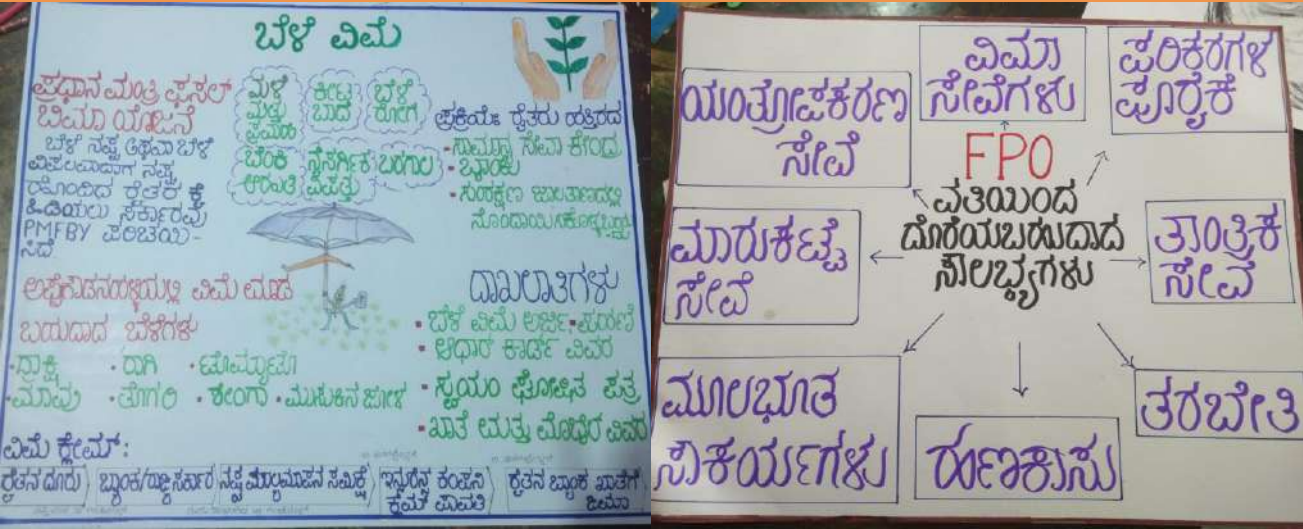 ಬೆಳೆ ವಿಮೆ
ಪ್ರಧಾನ ಮಂತ್ರಿ ಫಸಲ್
ಬಿಮಾ ಯೋಜನೆ
ಬೆಳೆ ನಷ್ಟ ಅಥವಾ ಬೆಳೆ
ವಿಫಲವಾದಾಗ ನಷ್ಟ
ಹೊಂದಿದ ರೈತರ ಕೈ
ಹಿಡಿಯಲು ಸರ್ಕಾರವು
PMFBY ಪರಿಚಯಿ-
ಸಿದೆ
ಮಳೆ
ಮತ್ತು
ಪ್ರವಾಹ
ಕೀಟ
ಬಾದೆ
ಬೆಳೆ
ರೋಗ
ಬೆಂಕಿ
ನೈಸರ್ಗಿಕ
ವಿಪತ್ತು
ಬರಗಾಲ
ಪ್ರಕ್ರಿಯೆ: ರೈತರು ಹತ್ತಿರದ
• ಸಾಮಾನ್ಯ ಸೇವಾ ಕೇಂದ್ರ
• ಬ್ಯಾಂಕು
• ಸಂರಕ್ಷಣ ಜಾಲತಾಣದಲ್ಲಿ
ವಿಮೆ ಮಾಡ
ಬಹುದಾದ ಬೆಳೆಗಳು
• ದ್ರಾಕ್ಷಿ • ರಾಗಿ • ಟೊಮ್ಯಾಟೋ
• ಮಾವು • ತೊಗರಿ • ಶೇಂಗಾ • ಮುಸುಕಿನ ಜೋಳ
ದಾಖಲಾತಿಗಳು
• ಬೆಳೆ ವಿಮೆ ಅರ್ಜಿ • ಪಹಣಿ
• ಆಧಾರ್ ಕಾರ್ಡ್ ವಿವರ
• ಸ್ವಯಂ ಘೋಷಿತ ಪತ್ರ
• ಖಾತೆ ಮತ್ತು ಮೊಬೈಲ ವಿವರ
ವಿಮೆ ಕ್ಲೇಮ್ :
ರೈತನ ದೂರು
ಬ್ಯಾಂಕ/ರಾಜ್ಯ ಸರ್ಕಾರ
ನಷ್ಟ ಮೌಲ್ಯಮಾಪನ ಸಮಿಕ್ಷೆ
ಇನ್ಸುರೆನ್ಸ ಕಂಪನಿ
ಕ್ಲೈಮ್ ಪಾವತಿ
ರೈತನ ಬ್ಯಾಂಕ ಖಾತೆಗೆ
ಜಮಾ
ಯಂತ್ರೋಪಕರಣ
ಸೇವೆ
ವಿಮಾ
ಸೇವೆಗಳು
ಪರಿಕರಗಳ
ಪೂರೈಕೆ
FPO
ವತಿಯಿಂದ
ದೊರೆಯಬಹುದಾದ
ಸೌಲಭ್ಯಗಳು
ಮಾರುಕಟ್ಟೆ
ಸೇವೆ
ತಾಂತ್ರಿಕ
ಸೇವೆ
ಮೂಲಭೂತ
ಸೌಕರ್ಯಗಳು
ಹಣಕಾಸು
ತರಬೇತಿ